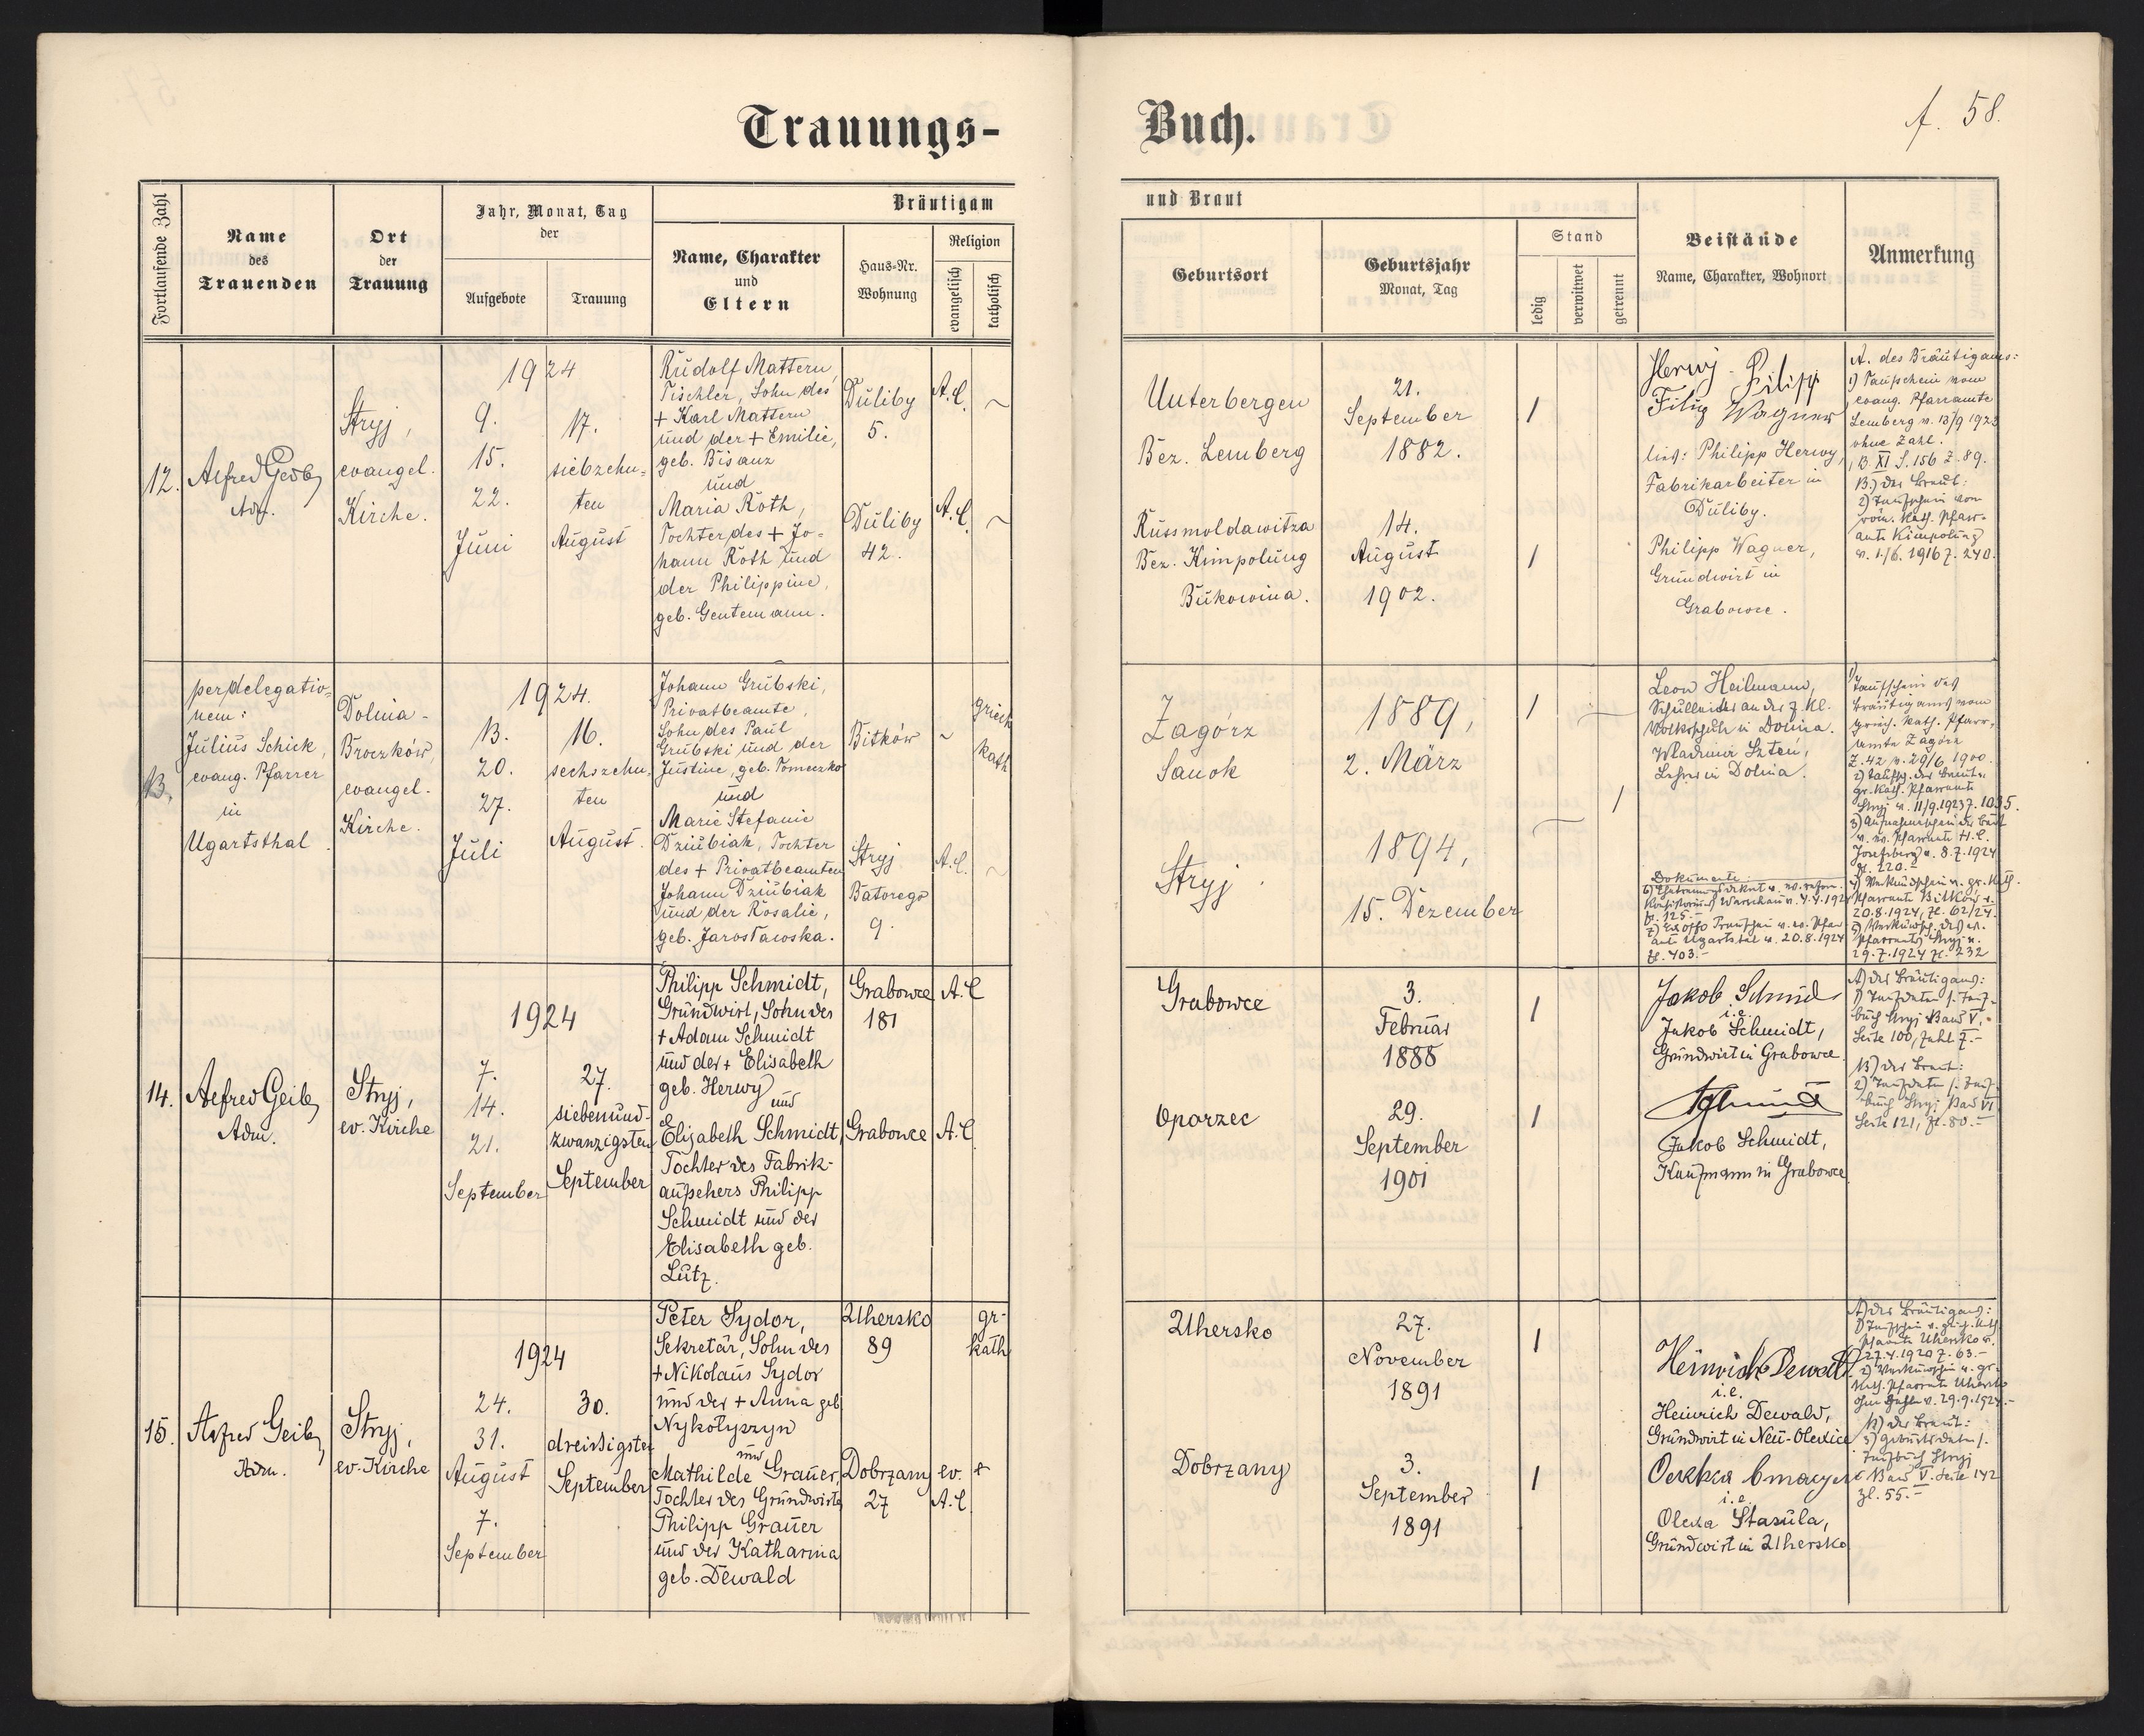 Trauungs-
Buch.
f. 58.
Fortlaufende Zahl
Name
des
Trauenden
Ort
der
Trauung
Jahr, Monat, Tag
der
Aufgebote
Trauung
Bräutigam
Name, Charakter
und
Eltern
Haus-Nr.
Wohnung
Religion
evangelisch
katholisch
und Braut
Geburtsort
Geburtsjahr
Monat, Tag
Stand
ledig
verwitwet
getrennt
Beistände
Name, Charakter, Wohnort
Anmerkung
12.
Alfred Geib,
Adm.
Stryj,
evangel.
Kirche.
1924
9.
15.
22.
Juni
17.
siebzehn-
ten
August
Rudolf Mattern,
Tischler, Sohn des
+ Karl Mattern
und der + Emilie,
geb. Bisanz
und
Maria Roth,
Tochter des + Jo-
hann Roth und
der Philippine,
geb. Gentemann.
Duliby
5.
Duliby
42.
A.C.
~
A.C.
~
Unterbergen
Bez. Lemberg
Russmoldawitza
Bez. Kimpolung
Bukowina.
21.
September
1882.
14.
August
1902.
/
/
Herwj - Filipp
Filip Wagner
lies: Philipp Herwy,
Fabrikarbeiter in
Duliby.
Philipp Wagner,
Grundwirt in
Grabowce.
A. des Bräutigams:
1) Taufschein vom
evang. Pfarramte
Lemberg v. 13/9 1923
ohne Zahl.
B. XI S. 156 Z. 89.
B.) der Braut:
2) Taufschein von
röm. kath. Pfarr-
amte Kimpolung
v. 1./6. 1916 Z. 240.
13.
per delegatio-
nem:
Julius Schick,
evang. Pfarrer
in
Ugartsthal.
Dolina-
Broczków,
evangel.
Kirche.
1924.
13.
20.
27.
Juli
16.
sechszehn-
ten
August.
Johann Grubski,
Privatbeamte,
Sohn des Paul
Grubski und der
Justine, geb. Tomeczko
und
Marie Stefanie
Dziubiak, Tochter
des + Privatbeamten
Johann Dziubiak
und der Rosalie,
geb. Jarosławska.
Bitków
Stryj
Batorego
9.
~
griech
kath
A.C.
~
Zagórz
Sanok
Stryj.
1889,
2. März
1894,
15. Dezember
/
/
Leon Heilmann,
Schulleiter an der 7 Kl.
Volksschule in Dolina.
Wladimir Szteń,
Lehrer in Dolina.
Dokumente:
Konsistoriums Warschau v. 4.4.1924
Zl. 125.-
amte Ugartstal v. 20.8.1924
Zl. 403.-
1)
Taufschein des
Bräutigams vom
griech. kath. Pfarr-
amte Zagórz
Z. 42 v. 29/6 1900.
2) Taufsch. der Braut v.
gr. kath. Pfarramte
Stryj v. 11/9.1923 Z. 1035.
3) Aufnahmeschein der Braut
v. ev. Pfarramte H.C.
Josefsberg v. 8.7.1924
Zl. 220.-
4) Verkündschein v. gr. kath.
Pfarramte Bitków v.
20.8.1924, Zl. 62/24.
5) Verkündsch. des ev.
Pfarramts Stryj v.
29.7.1924 Zl. 232
14.
Alfred Geib,
Adm.
Stryj,
ev. Kirche
1924
7.
14.
21.
September
27.
siebenund-
zwanzigsten
September
Philipp Schmidt,
Grundwirt, Sohn des
+ Adam Schmidt
und der + Elisabeth
geb. Herwy
und
Elisabeth Schmidt,
Tochter des Fabrik-
aufsehers Philipp
Schmidt und der
Elisabeth geb.
Lutz.
Grabowce
181
Grabowce
A.C
A.C
Grabowce
Oporzec
3.
Februar
1888
29.
September
1901
/
/
Jakob Schmid
i.e.
Jakob Schmidt,
Grundwirt in Grabowce
Schmidt
Jakob Schmidt,
Kaufmann in Grabowce
A) des Bräutigams:
1) Taufdaten s. Tauf-
buch Stryj Band V,
Seite 100, Zahl 7.-
B) der Braut:
2) Taufdaten s. Tauf-
buch Stryj Band VI
Seite 121, Zl. 80.-
15.
Alfred Geib,
Adm.
Stryj,
ev. Kirche
1924
24.
31.
August
7.
September
30.
dreissigsten
September
Peter Sydor,
Sekretär, Sohn des
+ Nikolaus Sydor
und der + Anna geb
Nykołyszyn
und
Mathilde Grauer,
Tochter des Grundwirts
Philipp Grauer
und der Katharina
geb. Dewald
Uhersko
89
Dobrzany
27
gr-
kath
ev.
A.C.
Uhersko
Dobrzany
27.
November
1891
3.
September
1891
/
/
Heinrich Dewald
i.e.
Heinrich Dewald,
Grundwirt in Neu-Olexice
i.e.
Olexa Stasula,
Grundwirt in Uhersko
A) des Bräutigams:
1) Taufschein v. griech. kath.
Pfarramte Uhersko v.
27.4.1920 Z. 63.-
2) Verkündschein v. gr.
kath. Pfarramte Uhersko
ohne Zahl v. 29.9.1924.-
B) der Braut:
3) Geburtsdaten s.
Taufbuch Stryj
Band V. Seite 142
Zl. 55.-